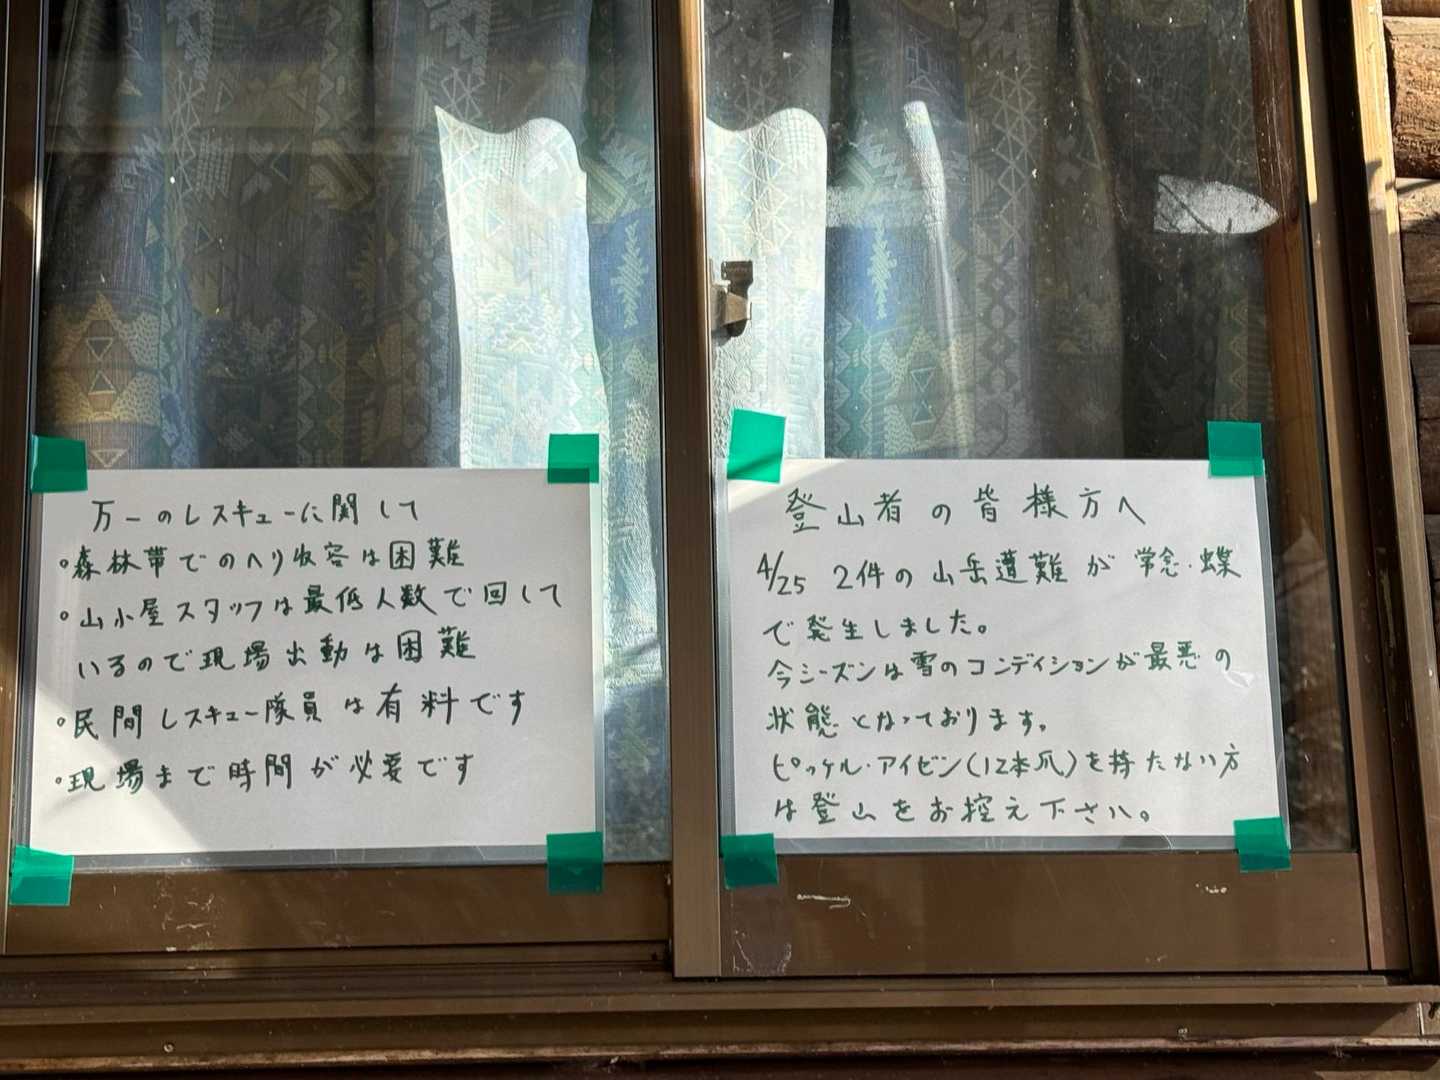 万一のレスキューに関して
・森林帯でのヘリ収容は困難
・山小屋スタッフは最低人数で回して
いるので現場出動は困難
・民間レスキュー隊員は有料です
・現場まで時間が必要です
登山者の皆様方へ
4/25 2件の山岳遭難が常念・蝶
で発生しました。
今シーズンは雪のコンディションが最悪の
状態となっております。
ピッケル・アイゼン(12本爪)を持たない方
は登山をお控え下さい。